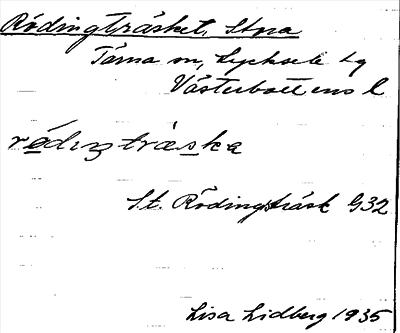 Rödingträsket, Stora
Tärna sn, Lycksele lg
Västerbottens l
St. Rödingträsk G32
Lisa Lidberg 1935